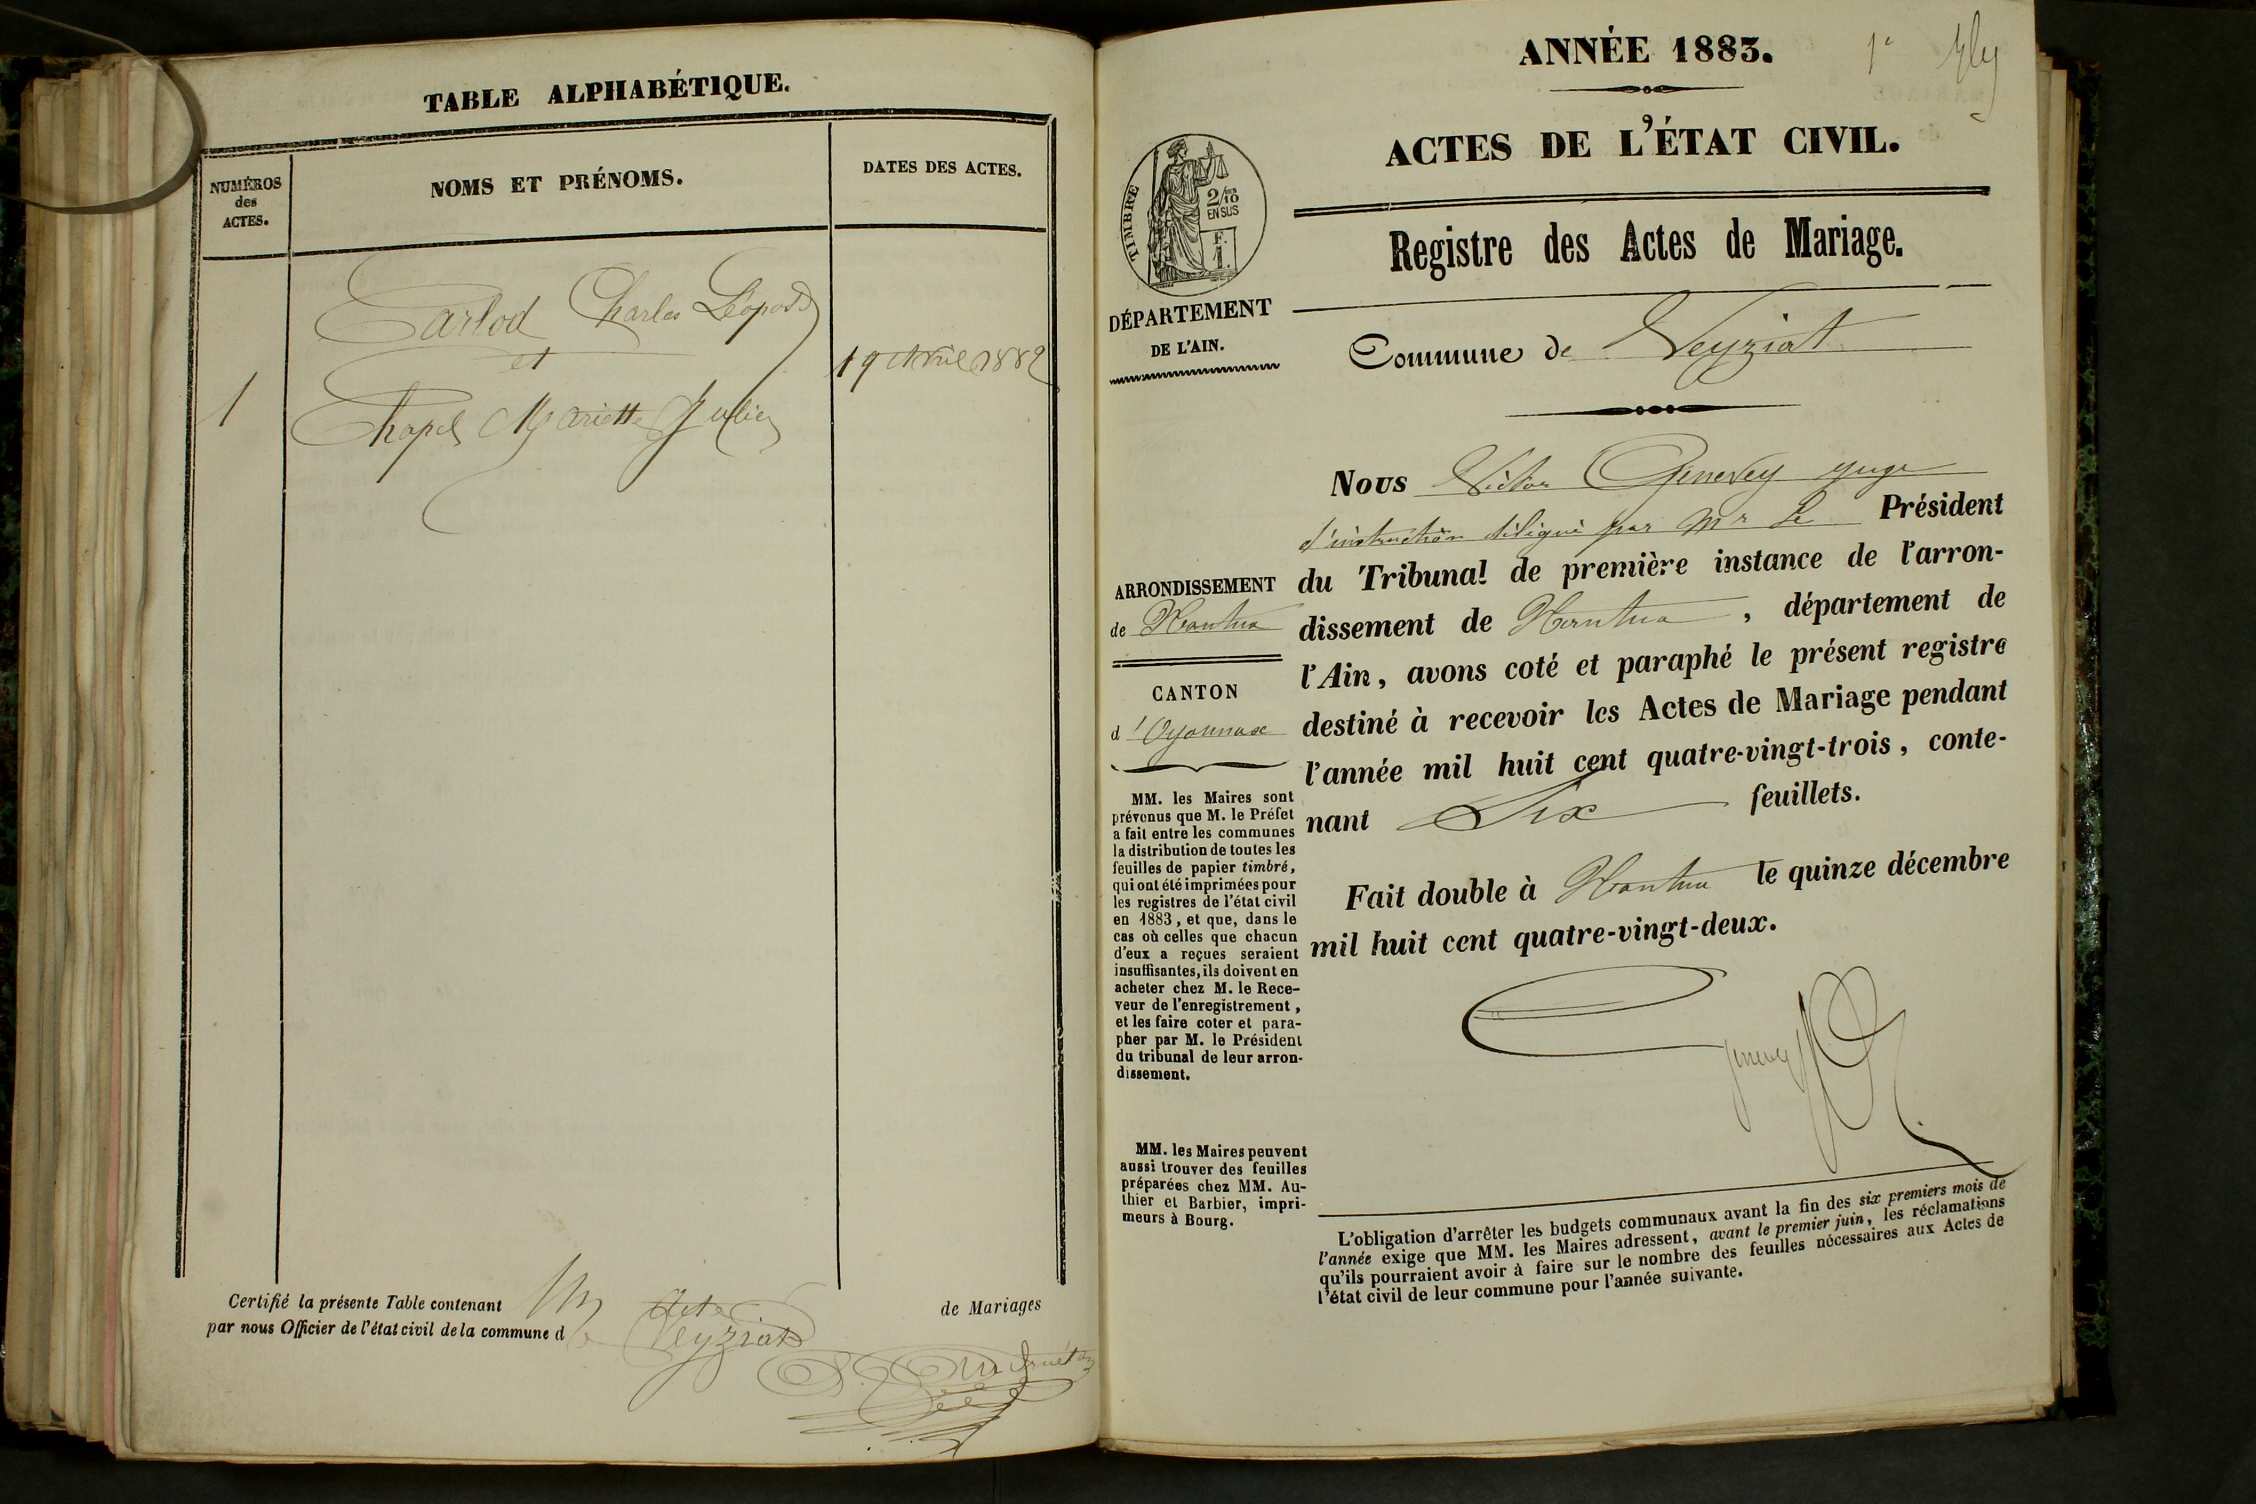 TABLE ALPHABÉTIQUE.
NUMÉROS
des
ACTES.
NOMS ET PRÉNOMS.
DATES DES ACTES.
Carlod Charles Léopold
et
1
19 Avril 1882
Chapel Mariette Julie
Certifié la présente Table contenant Un Acte de Mariages
par nous Officier de l'état civil de la commune de Veyziat
ANNÉE 1883.
1e
ACTES DE L'ÉTAT CIVIL.
TIMBRE
2/10
EN SUS
F.
1.
Registre des Actes de Mariage.
DÉPARTEMENT
DE L'AIN.
Commune de Veyziat
ARRONDISSEMENT
de Nantua
CANTON
d'Oyonnax
MM. les Maires sont
prévenus que M. le Préfet
a fait entre les communes
la distribution de toutes les
feuilles de papier timbré,
qui ont été imprimées pour
les registres de l'état civil
en 1883, et que, dans le
cas où celles que chacun
d'eux a reçues seraient
insuffisantes, ils doivent en
acheter chez M. le Rece-
veur de l'enregistrement,
et les faire coter et para-
pher par M. le Président
du tribunal de leur arron-
dissement.
MM. les Maires peuvent
aussi trouver des feuilles
préparées chez MM. Au-
thier et Barbier, impri-
meurs à Bourg.
Nous Victor Genevey juge
d'instruction délégué par Mr le Président
du Tribunal de première instance de l'arron-
dissement de Nantua, département de
l'Ain, avons coté et paraphé le présent registre
destiné à recevoir les Actes de Mariage pendant
l'année mil huit cent quatre-vingt-trois, conte-
nant Six feuillets.
Fait double à Nantua le quinze décembre
mil huit cent quatre-vingt-deux.
Genevey
L'obligation d'arrêter les budgets communaux avant la fin des six premiers mois de
l'année exige que MM. les Maires adressent, avant le premier juin, les réclamations
qu'ils pourraient avoir à faire sur le nombre des feuilles nécessaires aux Actes de
l'état civil de leur commune pour l'année suivante.